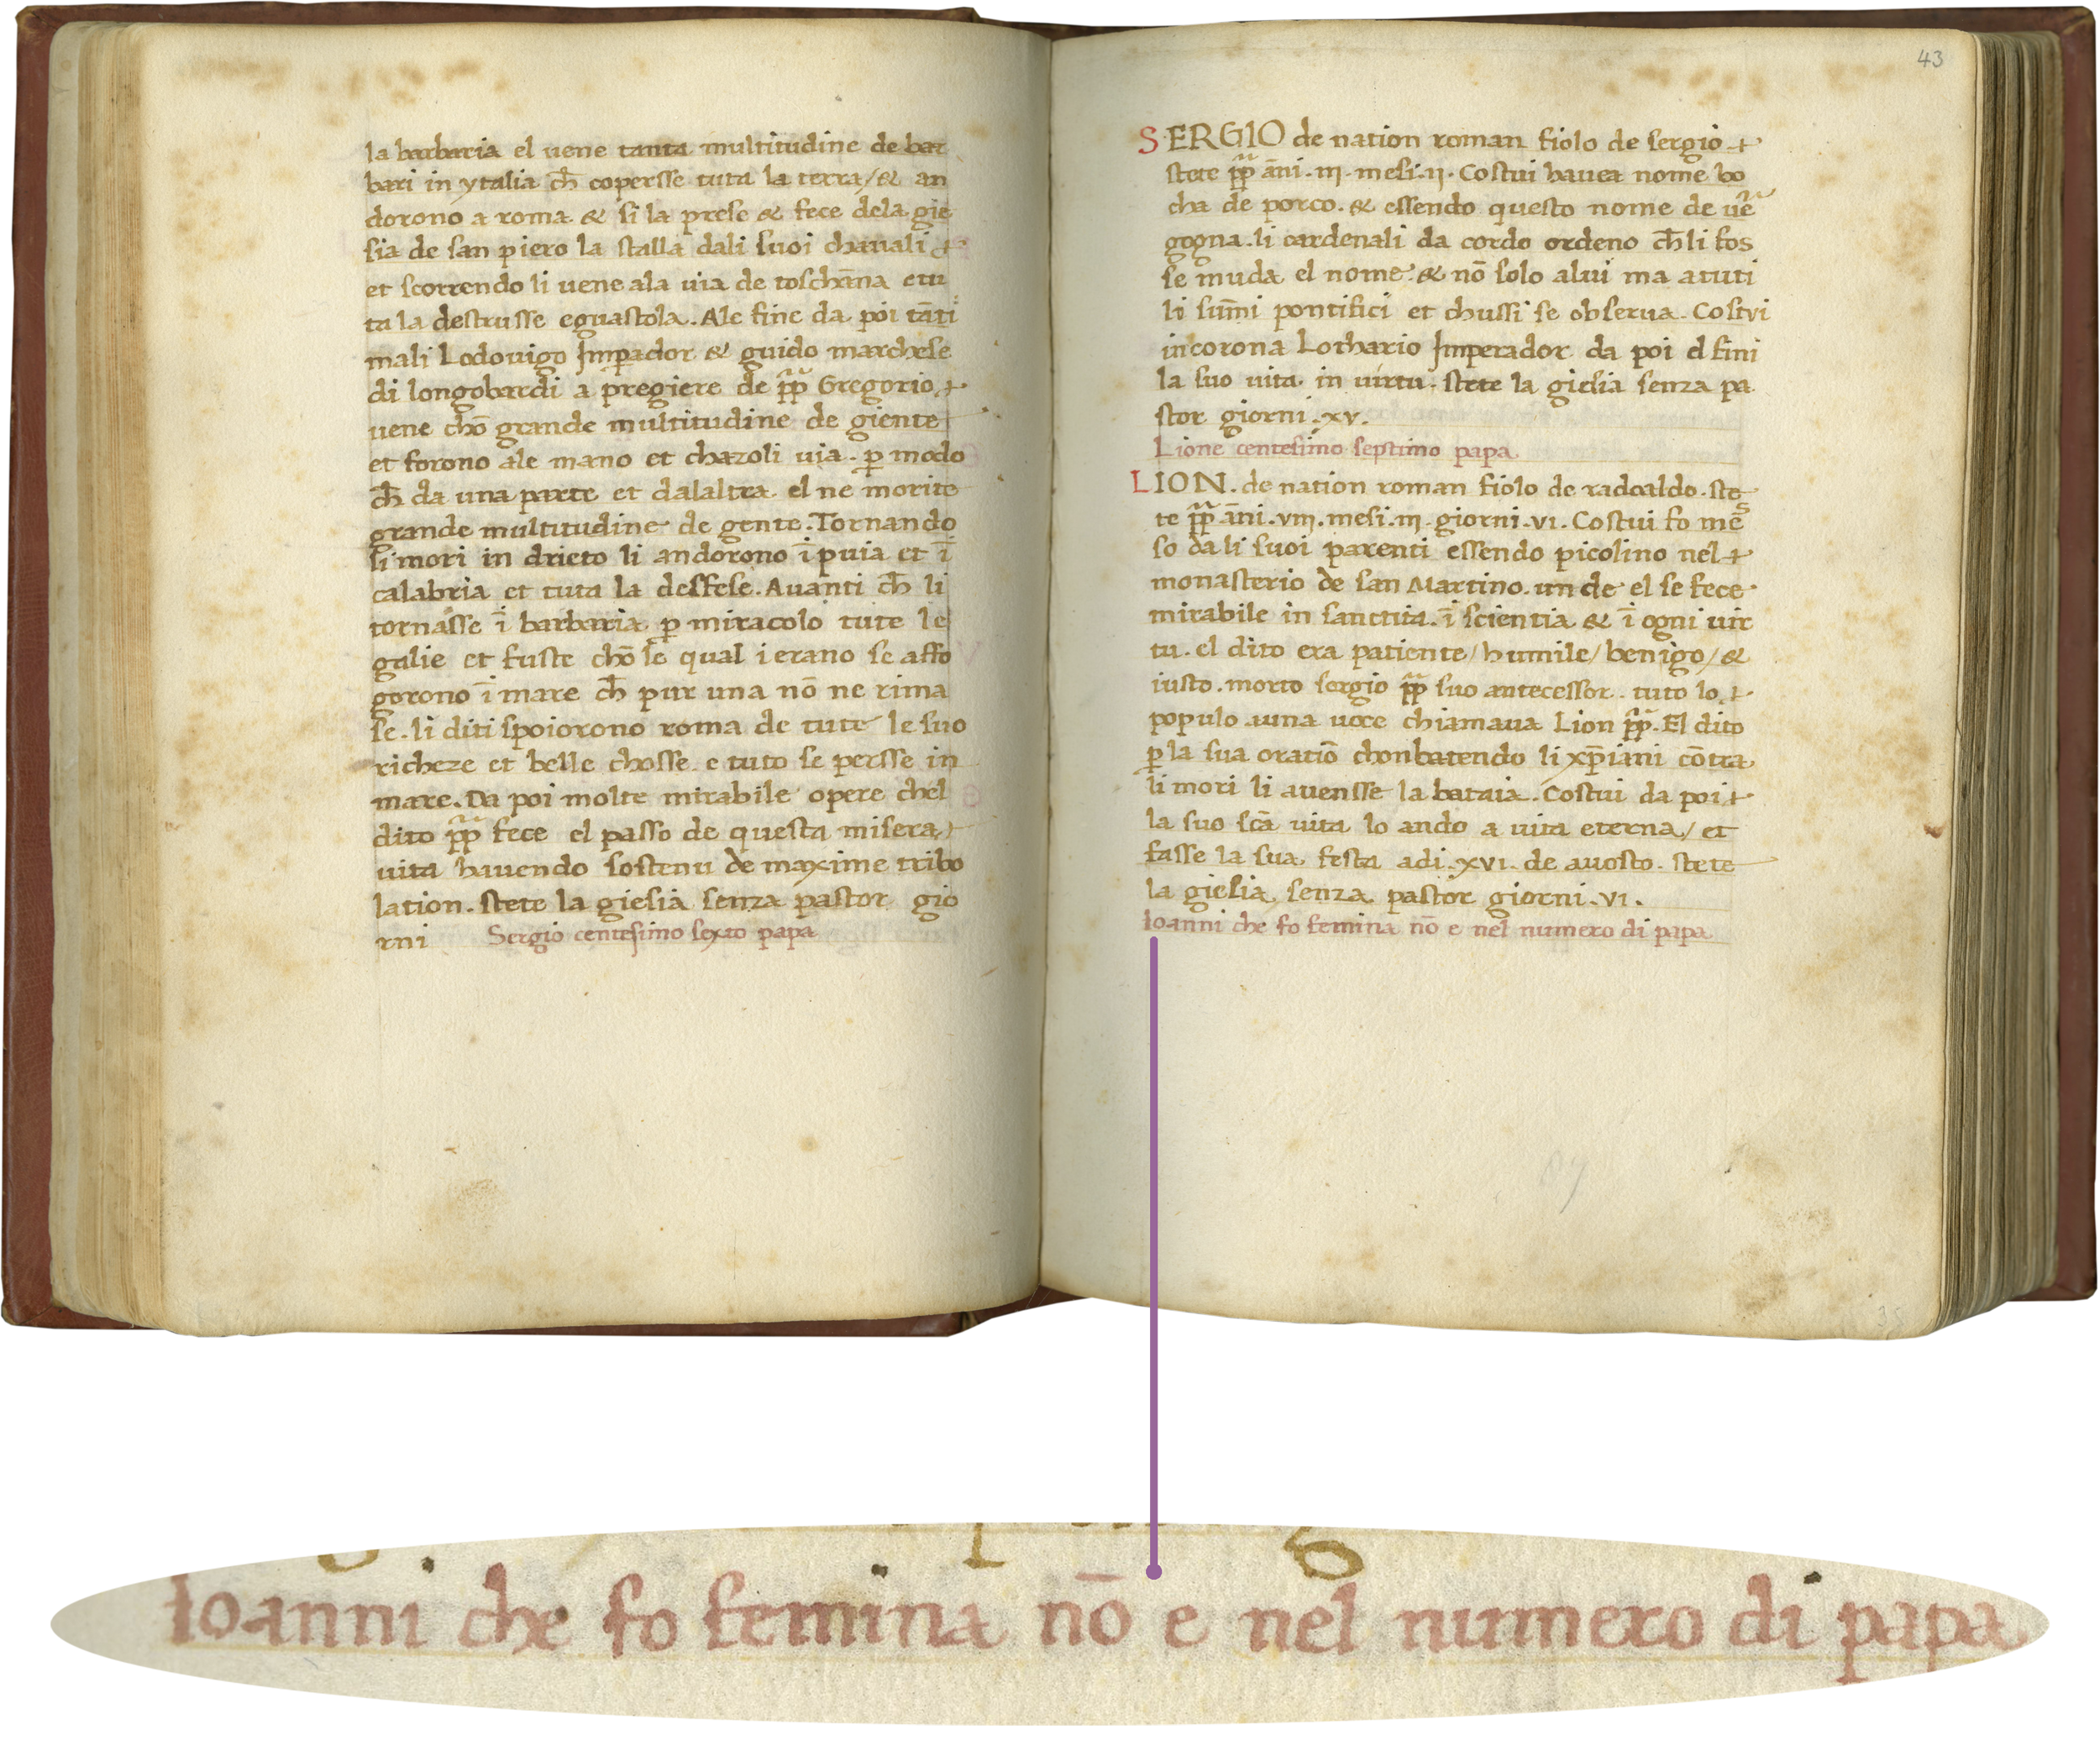 la barbaria el uene tanta multitudine de bar
bari in ytalia ch̄ copersse tuta la terra/& an
dorono a roma & si la prese & fece dela gie
sia de san piero la stalla dali suoi chauali
et scorrendo li uene ala uia de toschāna etu
ta la destrusse eguastola. Ale fine da poi tāti
mali Lodouigo Imꝑador & guido marchese
di longobardi a pregiere de pp̄ Gregorio
uene chō grande multitudine de giente
et forono ale mano et chazoli uia. ꝑ modo
ch̄ da una parte et dalaltra el ne morite
grande multitudine de gente. Tornando
li mori in drieto li andorono ī puia et ī
calabria et tuta la desfese. Auanti ch̄ li
tornasse ī barbaria ꝑ miracolo tute le
galie et fuste chō le qual i erano se affo
gorono ī mare ch̄ pur una nō ne rima
se. li diti spoiorono roma de tute le suo
richeze et belle chosse e tuto se persse in
mare. Da poi molte mirabile opere chel
dito pp̄ fece el passo de questa misera
uita hauendo sostenu de maxime tribo
lation. stete la giesia senza pastor gio
rni Sergio centesimo sexto papa
43
SERGIO de nation roman fiolo de sergio
stete pp̄ āni .iij. mesi .ij. Costui hauea nome bo
cha de porco. & essendo questo nome de uē
gogna. li cardenali da cordo ordeno ch̄ li fos
se muda el nome. & nō solo alui ma atuti
li sūmi pontifici et chussi se obserua. Costui
incorona Lothario Imperador da poi el fini
la suo uita in uirtu. stete la giesia senza pa
stor giorni .xv.
Lione centesimo septimo papa
LION. de nation roman fiolo de radoaldo. ste
te pp̄ āni .viij. mesi .iij. giorni .vi. Costui fo mes
so da li suoi parenti essendo picolino nel
monasterio de san Martino. un de el se fece
mirabile in sanctita. ī scientia & ī ogni uir
tu. el dito era patiente/humile/benigo/&
iusto. morto sergio pp̄ suo antecessor. tuto lo
populo auna uoce chiamaua Lion pp̄. El dito
ꝑ la sua oratiō chonbatendo li xp̄iani cōtra
li mori li auensse la bataia. Costui da poi
la suo sc̄a uita lo ando a uita eterna/et
fasse la sua festa adi .xvi. de auosto. stete
la giesia senza pastor giorni .vi.
Ioanni che fo femina nō e nel numero di papa
Ioanni che fo femina nō e nel numero di papa